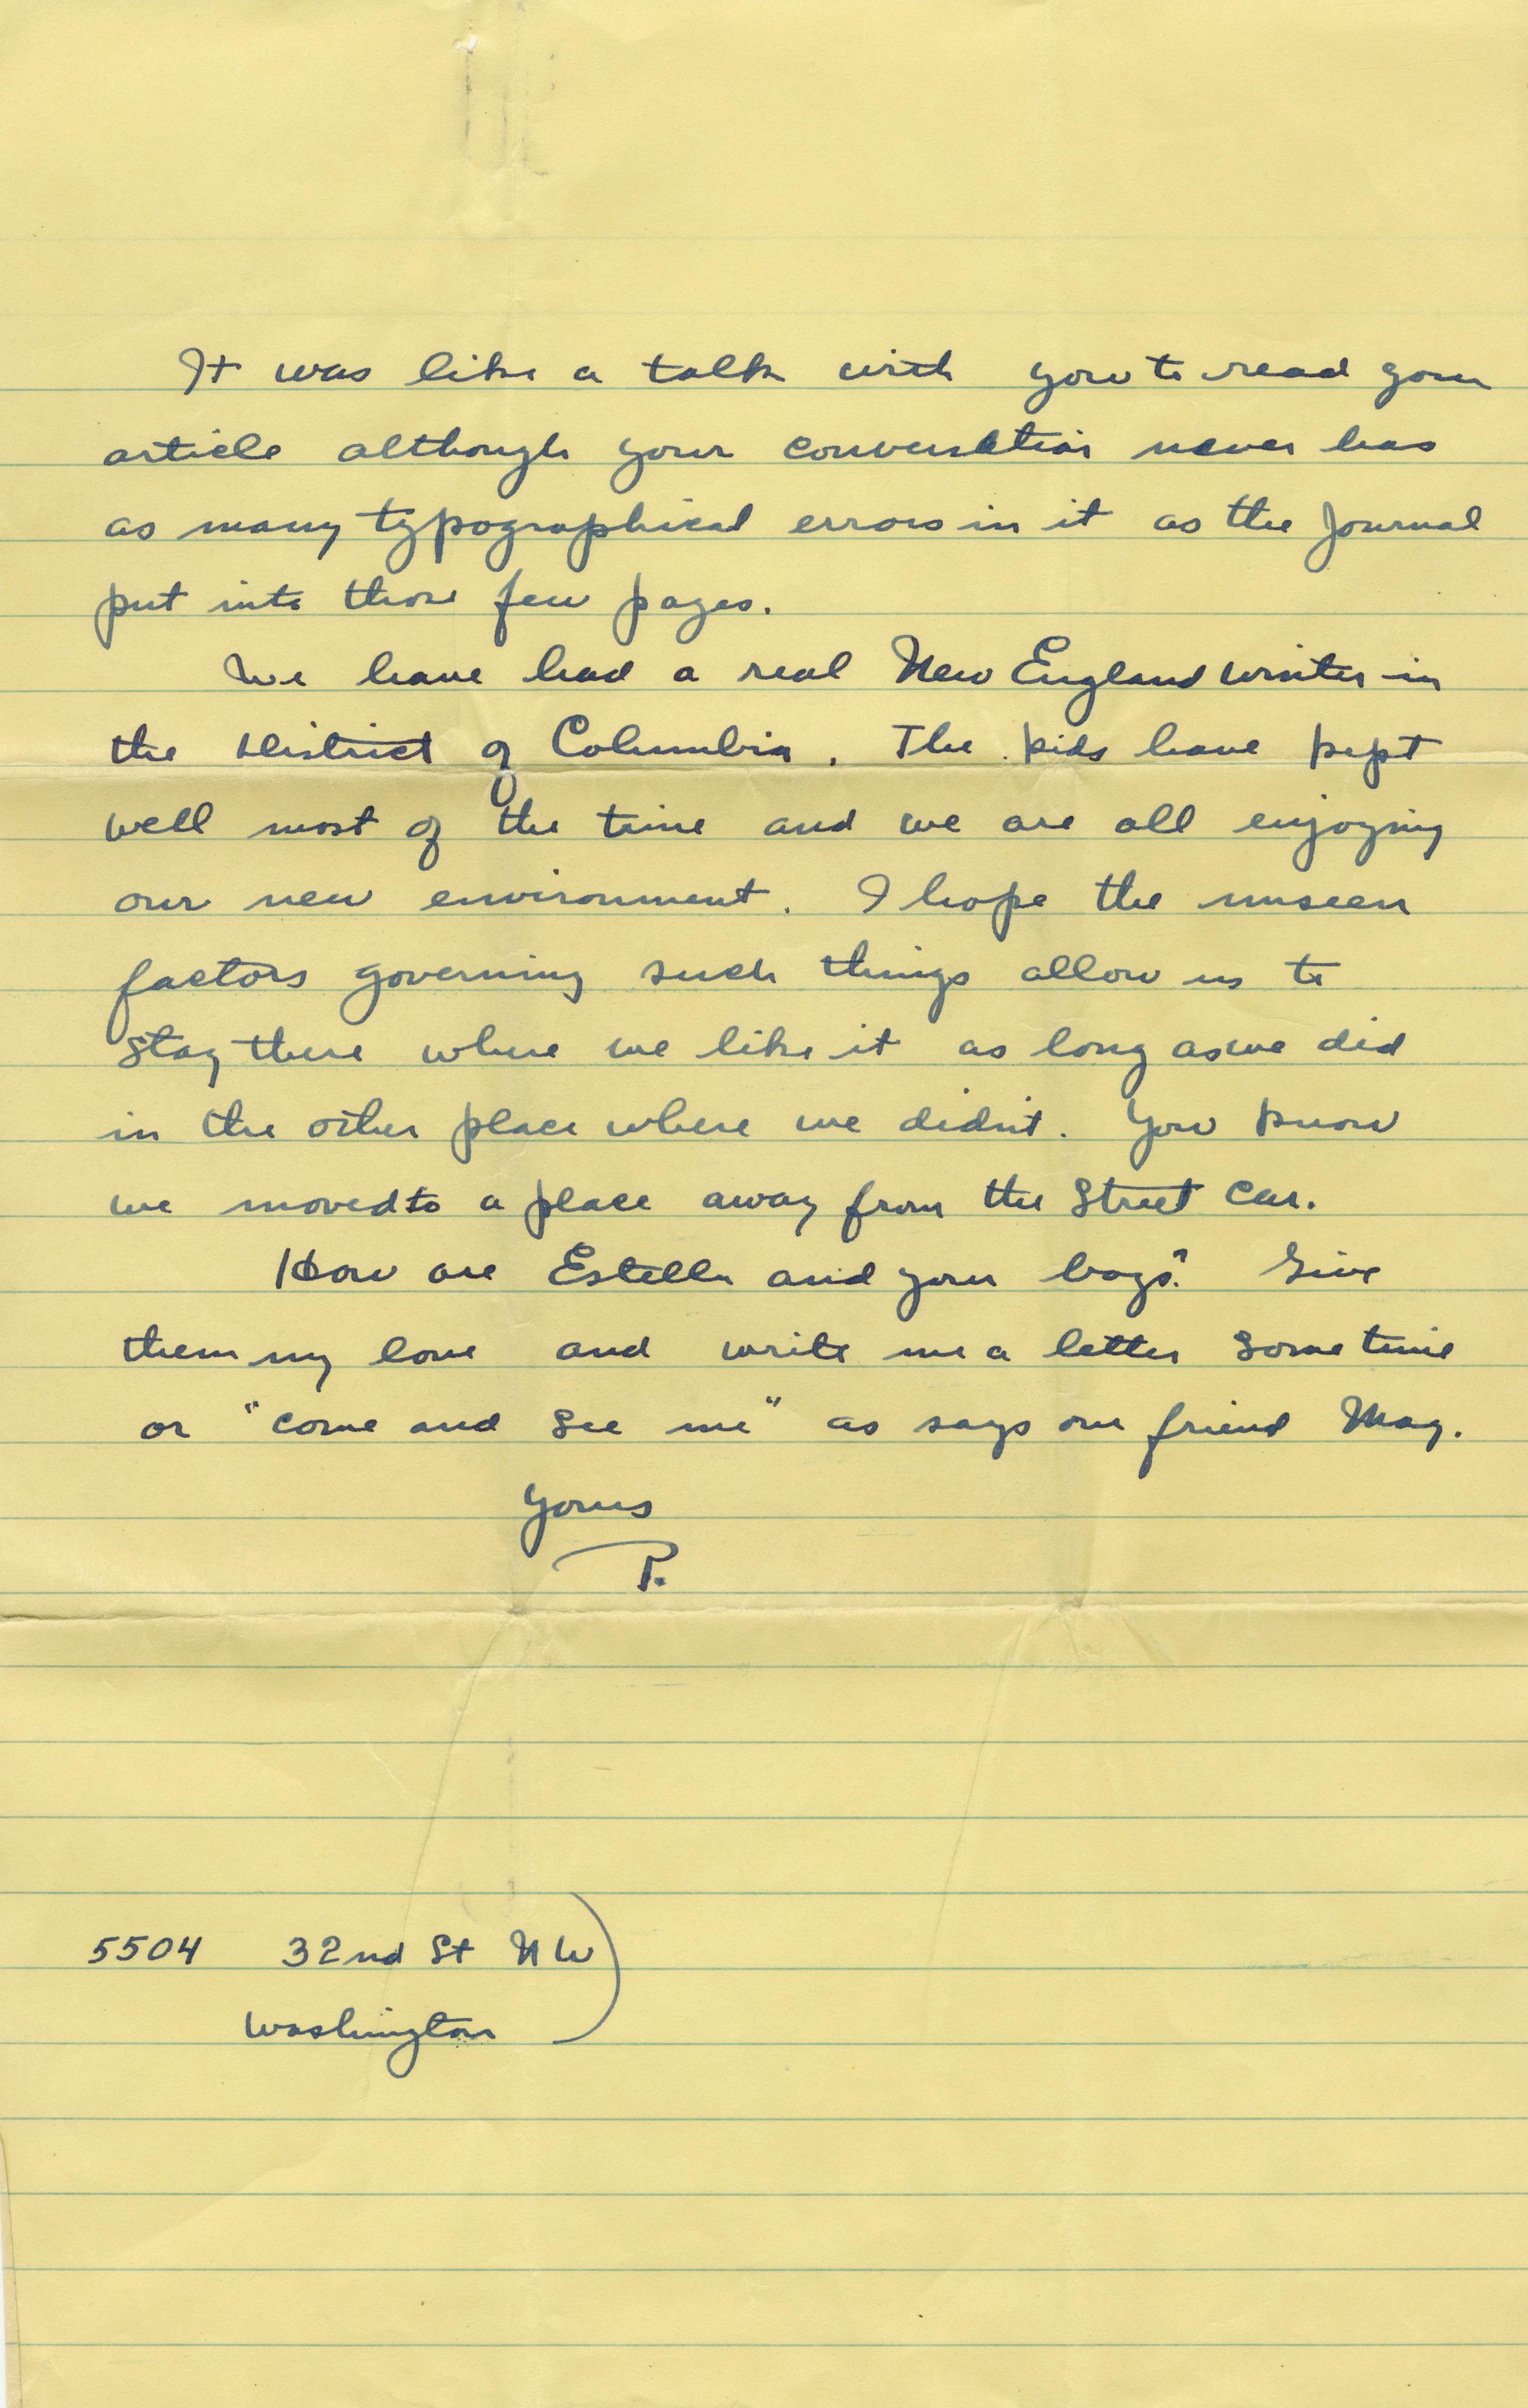 It was like a talk with you to read your
article although your conversation never has
as many typographical errors in it as the Journal
put into those few pages.
We have had a real New England winter in
the District of Columbia. The kids have kept
well most of the time and we are all enjoying
our new environment. I hope the unseen
factors governing such things allow us to
stay there where we like it as long as we did
in the other place where we didn't. You know
we moved to a place away from the street car.
How are Estelle and your boys? Give
them my love and write me a letter sometime
or "come and see me" as says our friend May.
Yours
P.
5504 32nd St NW
Washington